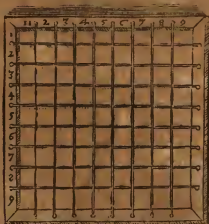 1 2 3 4 5 6 7 8 9
1
2
3
4
5
6
7
8
9